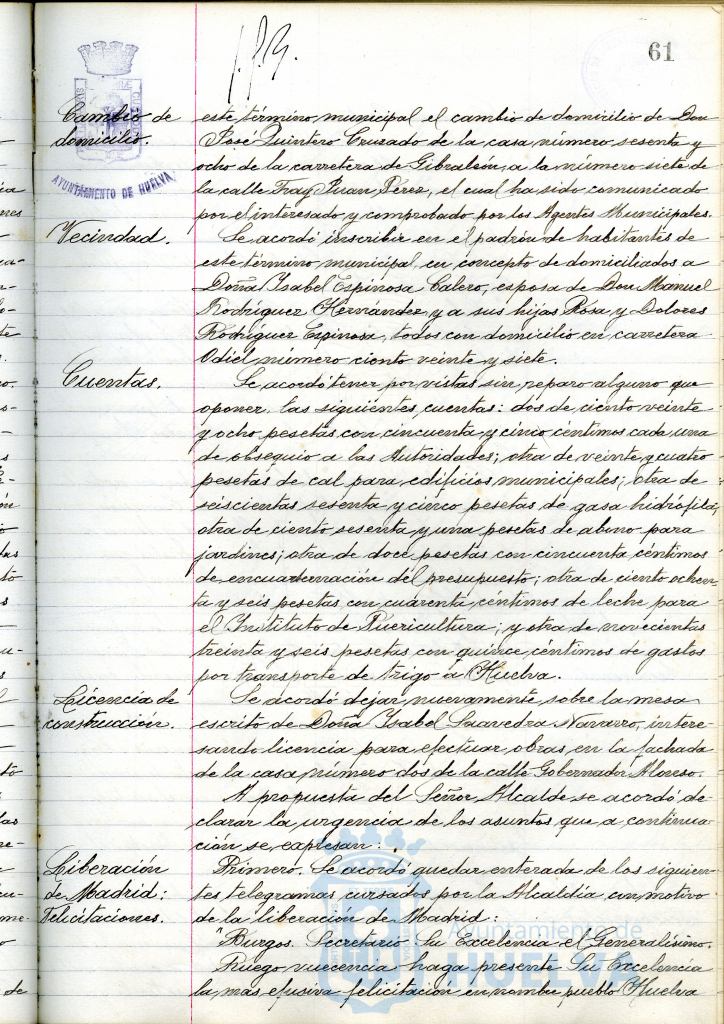 61
Cambio de
domicilio.
AYUNTAMIENTO DE HUELVA
este término municipal el cambio de domicilio de Don
José Quintero Cruzado de la casa número sesenta y
ocho de la carretera de Gibraleón, a la número siete de
la calle Fray Juan Pérez, el cual ha sido comunicado
por el interesado y comprobado por los Agentes Municipales.
Vecindad.
Se acordó inscribir en el padrón de habitantes de
este término municipal, en concepto de domiciliados a
Doña Ysabel Espinosa Calero, esposa de Don Manuel
Rodríguez Hernández, y a sus hijas Rosa y Dolores
Rodríguez Espinosa, todos con domicilio en carretera
Odiel número ciento veinte y siete.
Cuentas.
Se acordó tener por vistas sin reparo alguno que
oponer, las siguientes cuentas: dos de ciento veinte
y ocho pesetas con cincuenta y cinco céntimos cada una
de obsequio a las Autoridades; otra de veinte y cuatro
pesetas de cal para edificios municipales; otra de
seiscientas sesenta y cinco pesetas de gasa hidrófila;
otra de ciento sesenta y una pesetas de abono para
jardines; otra de doce pesetas con cincuenta céntimos
de encuadernación del presupuesto; otra de ciento ochen-
ta y seis pesetas con cuarenta céntimos de leche para
el Instituto de Puericultura; y otra de novecientas
treinta y seis pesetas con quince céntimos de gastos
por transporte de trigo a Huelva.
Licencia de
construcción.
Se acordó dejar nuevamente sobre la mesa
escrito de Doña Ysabel Saavedra Navarro, intere-
sando licencia para efectuar obras en la fachada
de la casa número dos de la calle Gobernador Alonso.
A propuesta del Señor Alcalde se acordó de-
clarar la urgencia de los asuntos que a continua-
ción se expresan:
Liberación
de Madrid:
Felicitaciones.
Primero. Se acordó quedar enterada de los siguien-
tes telegramas, cursados por la Alcaldía con motivo
de la liberación de Madrid:
"Burgos. Secretario. Su Excelencia el Generalísimo.
Ruego vuecencia haga presente Su Excelencia
la más efusiva felicitación en nombre pueblo Huelva
Ayuntamiento de
HUELVA